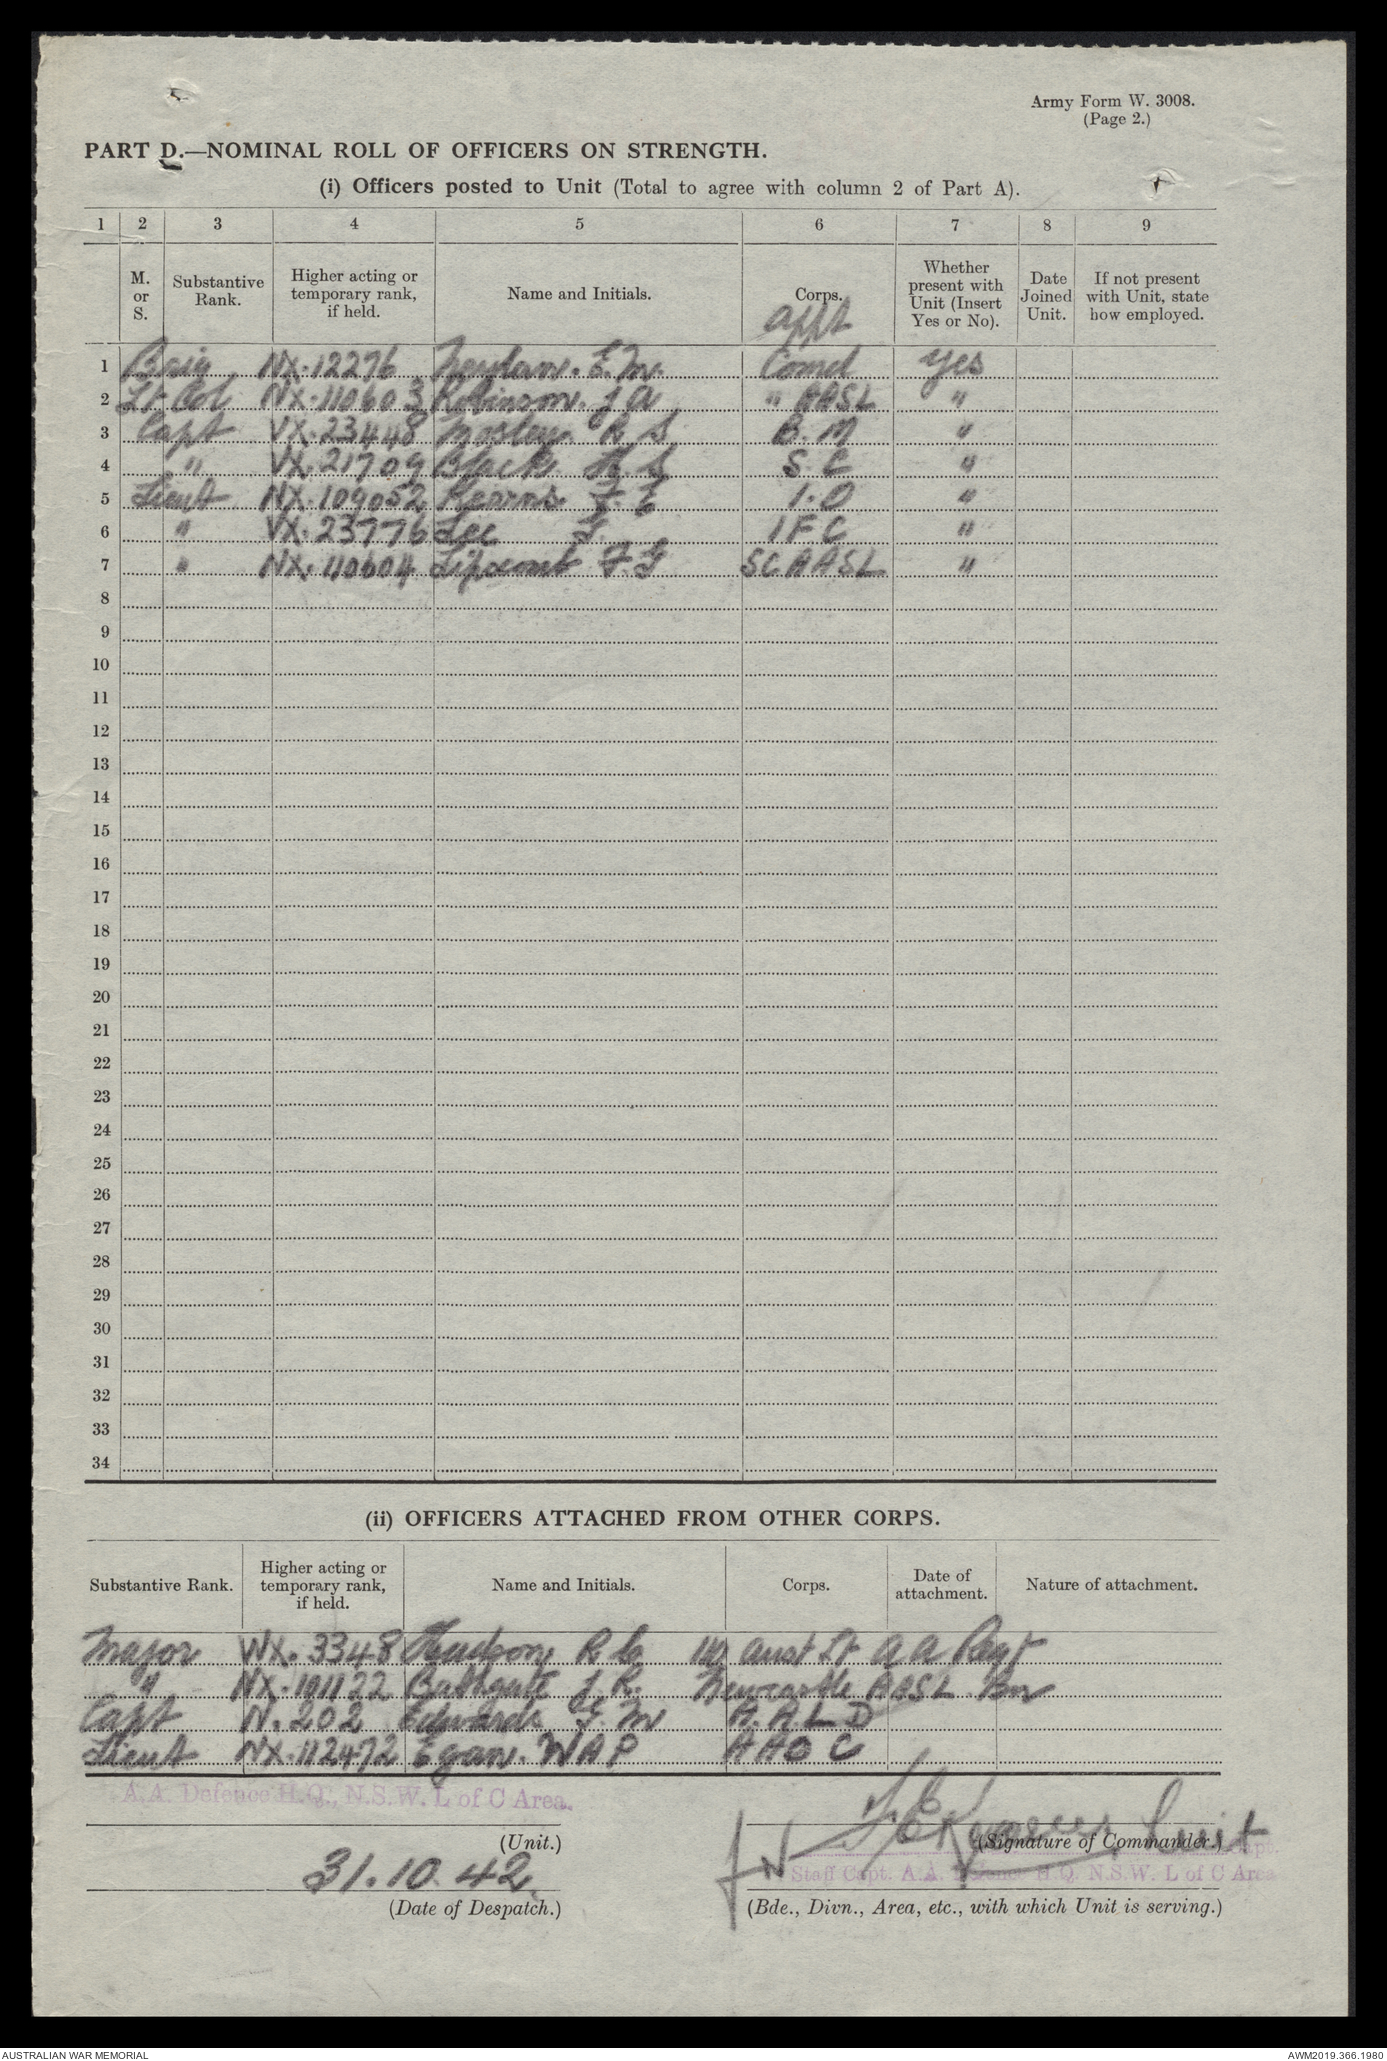 Army Form W. 3008.
(Page 2.)
PART D.—NOMINAL ROLL OF OFFICERS ON STRENGTH.
(i) Officers posted to Unit (Total to agree with column 2 of Part A).
1 2 3 4 5 6 7 8 9
M. or S. Substantive Rank. Higher acting or temporary rank, if held. Name and Initials. Corps. Whether present with Unit (Insert Yes or No). Date Joined Unit. If not present with Unit, state how employed.
appt
1 Brig NX.12276 Neylan. E.M. Comd Yes
2 Lt Col NX.110603 Robinson. J A " AASL "
3 Capt VX.23448 Mosley. R S B.M "
4 " VX.21709 Black. H. S S.C "
5 Lieut NX.109052 Kearns F. E I.O "
6 " VX.23776 Lee F. IFC "
7 " NX.110604 Lipscomb F.G SCAASL "
8
9
10
11
12
13
14
15
16
17
18
19
20
21
22
23
24
25
26
27
28
29
30
31
32
33
34
(ii) OFFICERS ATTACHED FROM OTHER CORPS.
Substantive Rank. Higher acting or temporary rank, if held. Name and Initials. Corps. Date of attachment. Nature of attachment.
Major WX.3348 Hudson R Aust Lt A A Regt
" NX.101122 Bathgate J.R. Newcastle AASL Bn
Capt N.202 Edwards F.M A.A.L.D
Lieut NX.112472 Egan. W A P A A O C
A.A. Defence H.Q., N.S.W. L of C Area.
(Unit.)
(Signature of Commander.)
31.10.42.
Capt.
Staff Capt. A.A. Defence H.Q. N.S.W. L of C Area
(Date of Despatch.)
(Bde., Divn., Area, etc., with which Unit is serving.)
AUSTRALIAN WAR MEMORIAL
AWM2019.366.1980